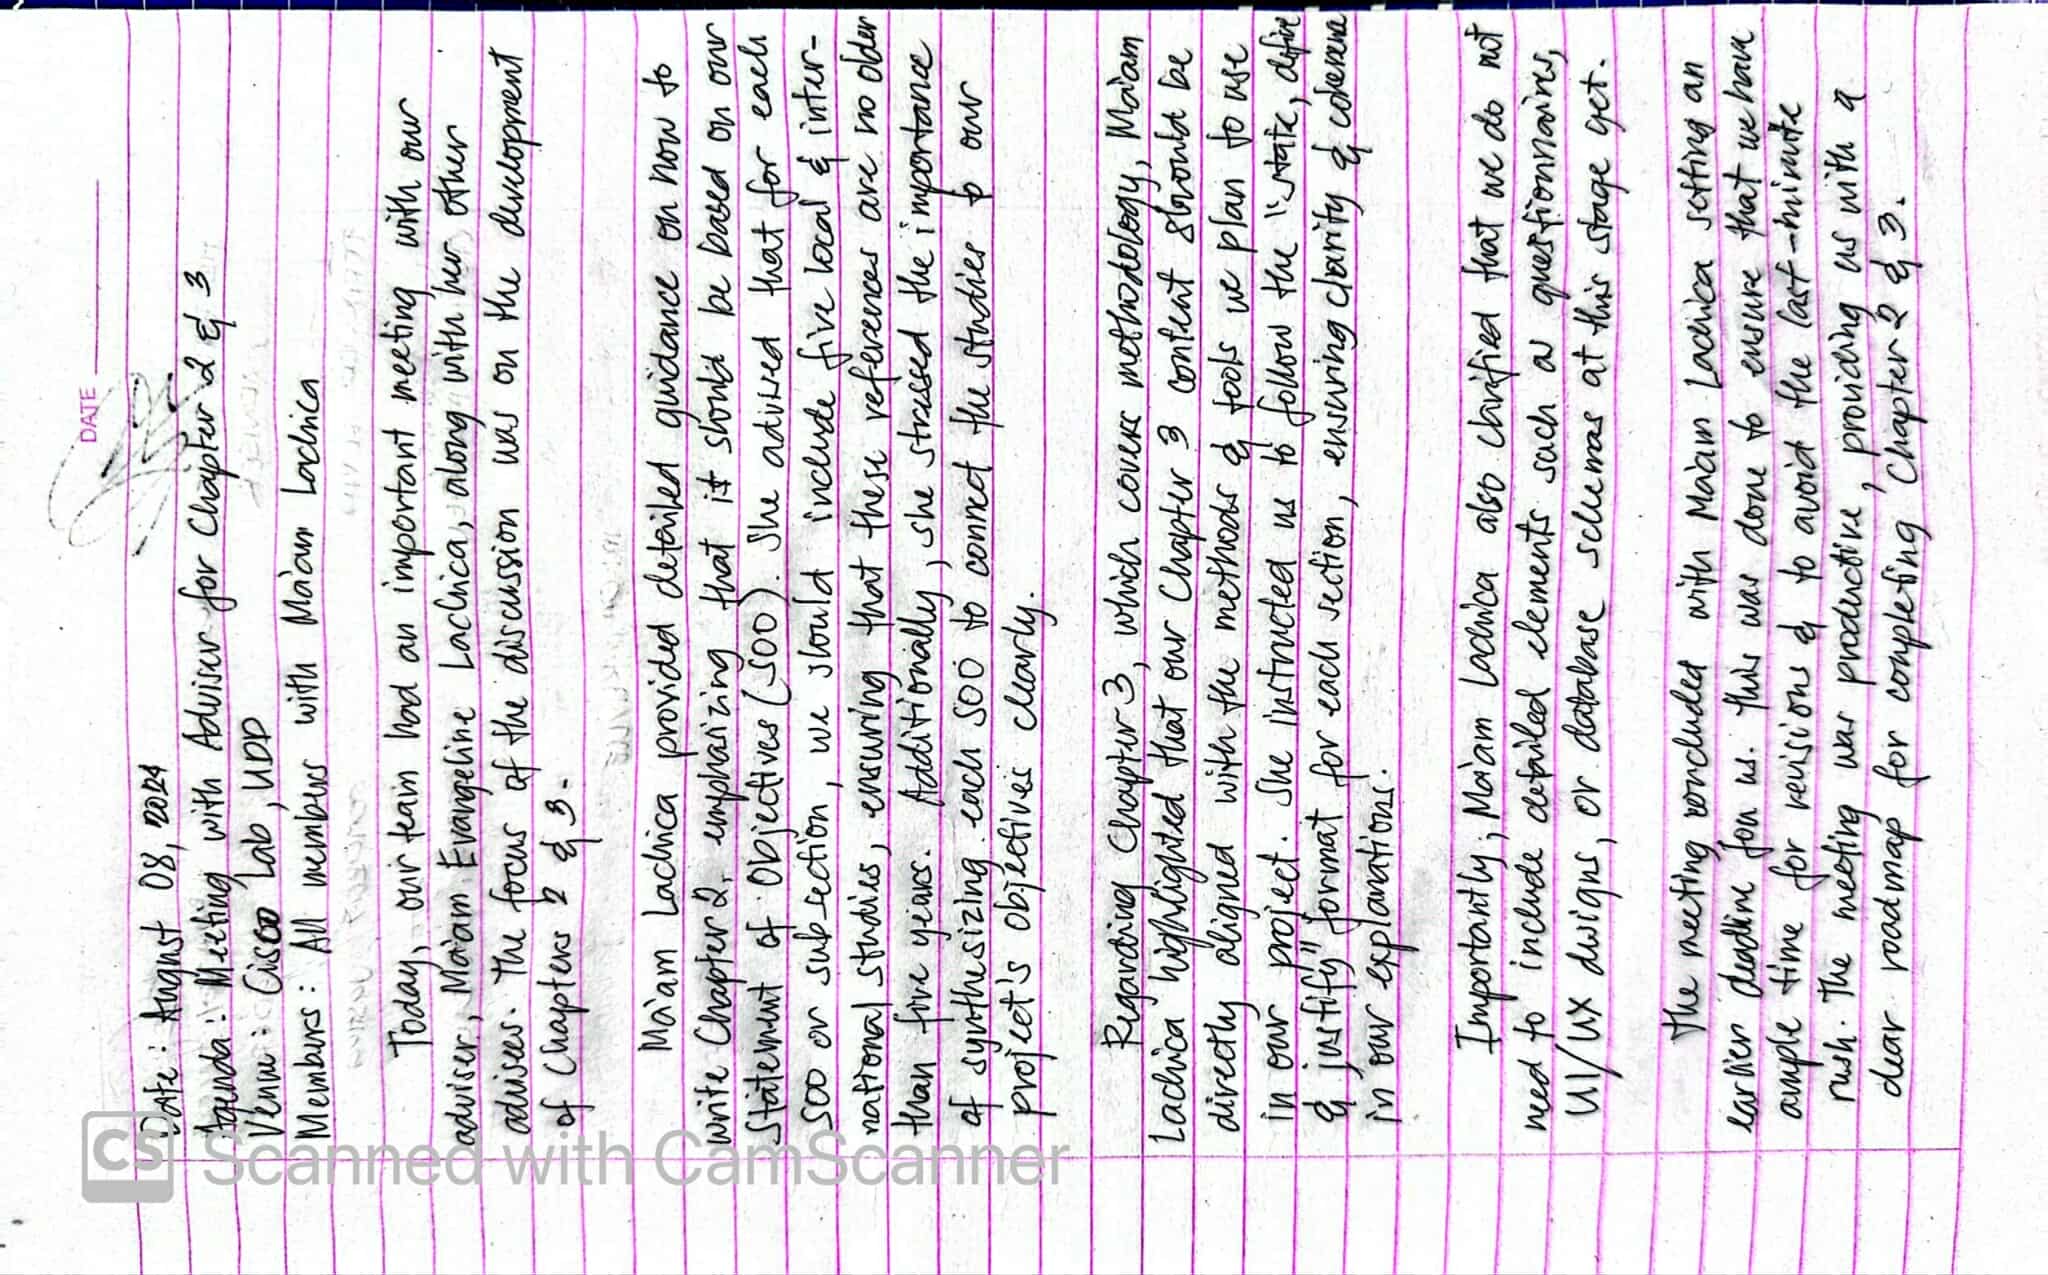 DATE
Date: August 08, 2024
Agenda: Meeting with Adviser for Chapter 2 & 3
Venue: Cisco Lab, UDD
Members: All members with Ma'am Lachica
Today, our team had an important meeting with our
adviser, Ma'am Evangeline Lachica, along with her other
advisees. The focus of the discussion was on the development
of Chapters 2 & 3.
Ma'am Lachica provided detailed guidance on how to
write Chapter 2, emphasizing that it should be based on our
Statement of Objectives (SOO). She advised that for each
SOO or subsection, we should include five local & inter-
national studies, ensuring that these references are no older
than five years. Additionally, she stressed the importance
of synthesizing each SOO to connect the studies to our
project's objectives clearly.
Regarding Chapter 3, which covers methodology, Ma'am
Lachica highlighted that our Chapter 3 content should be
directly aligned with the methods & tools we plan to use
in our project. She instructed us to follow the "state, define
& justify" format for each section, ensuring clarity & coherence
in our explanations.
Importantly, Ma'am Lachica also clarified that we do not
need to include detailed elements such a questionnaires,
UI/UX designs, or database schemas at this stage yet.
The meeting concluded with Ma'am Lachica setting an
earlier deadline for us. This was done to ensure that we have
ample time for revisions & to avoid the last-minute
rush. The meeting was productive, providing us with a
clear roadmap for completing Chapter 2 & 3.
CS Scanned with CamScanner